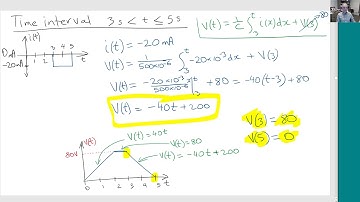 Time interval 3s < t ≤ 5s
V(t) = 1/C ∫₃ᵗ i(x)dx + V(3) 80
i(t)
0mA
-20mA
1 2 3 4 5 t
i(t) = -20mA
V(t) = 1/(500×10⁻⁶) ∫₃ᵗ -20×10⁻³ dx + V(3)
V(t) = (-20×10⁻³)/(500×10⁻⁶) x |₃ᵗ + 80 = -40(t-3) + 80
V(t) = -40t + 200
V(3) = 80
V(5) = 0
V(t)
V(t) = 40t
V(t) = 80
V(t) = -40t + 200
80V
0 1 2 3 4 5 t